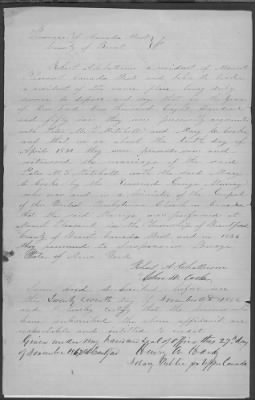 Province of Canada West
County of Brant
Robert A. Chatterson a resident of Mount
Pleasant Canada West and John H. Cooke
a resident of the same place being duly
sworn do depose and say that in the year
of our Lord One thousand Eight hundred
and fifty one they were personally acquainted
with Peter M. S. Mitchell and Mary C. Cooke
and that on or about the tenth day of
April 1851 they were present and
witnessed the marriage of the said
Peter M. S. Mitchell with the said Mary
C. Cooke by the Reverend George
who was a minister of the Gospel
of the United Presbyterian Church in Canada
that the said Marriage was performed at
Mount Pleasant in the township of Brantford
County of Brant Canada West and in 1854
they removed to Suspension Bridge
State of New York
Robert A. Chatterson
John H. Cooke
Sworn and subscribed before me
this Twenty seventh day of November
and I hereby certify that the
who subscribed the above affidavit are
respectable and entitled to credit
Given under my hand and seal of office this 27th day
of November
Henry
Notary Public for Upper Canada